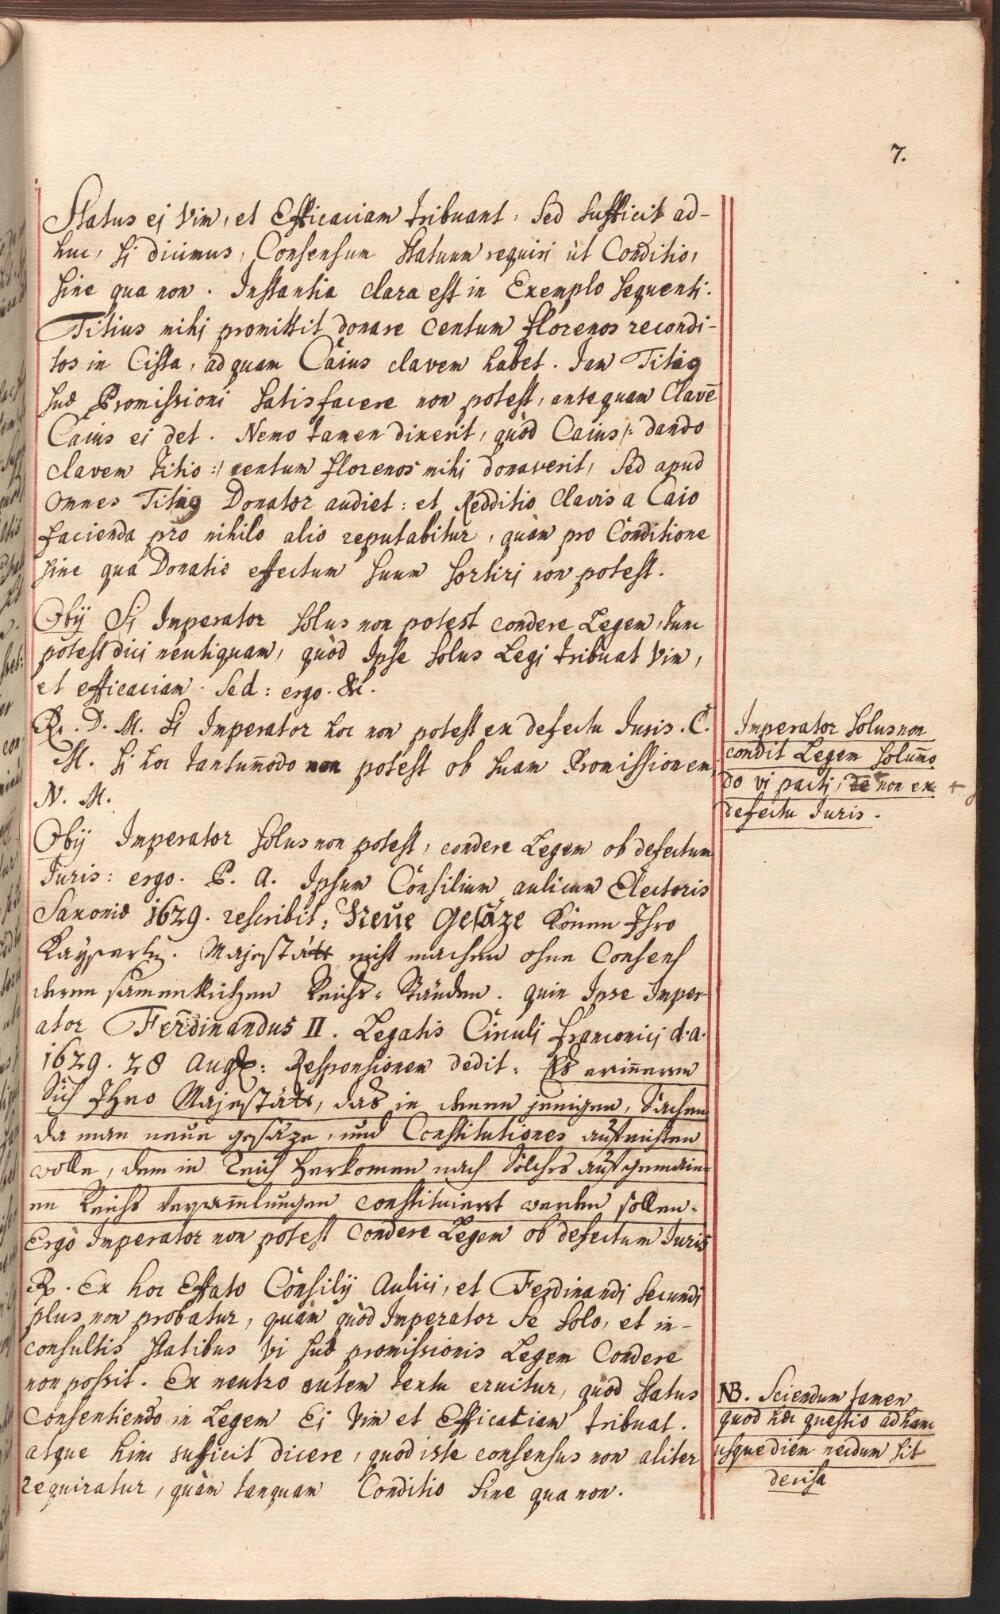 7.
Status ej Vim, et Efficaciam tribuant. Sed sufficit ad-
huc, si dicimus, Consensum statuum requiri ùt Conditio,
sine qua non. Instantia clara est in Exemplo sequenti.
Titius mihi promittit donare Centum florenos recondi-
tos in Cista, ad quam Caius clavem habet. Jam Titius
suæ Promissioni satisfacere non potest, antequam Clavē
Caius ei det. Nemo tamen dixerit, quòd Caius /: dando
clavem Titio :/ centum florenos mihi donaverit, sed apud
omnes Titius Donator audiet: et Redditio Clavis a Caio
facienda pro nihilo alio reputabitur, quàm pro Conditione
sine quâ Donatio effectum suum sortiri non potest.
Obij Si Imperator solus non potest condere Legem, tunc
potest dici neutiquam, quòd Ipse solus Legi tribuat Vim,
et efficaciam. Sed: ergo. &c.
R. D. M. Si Imperator hoc non potest ex defectu Juris. C.
M. si hoc tantum̄odo non potest ob suam Promissionem
N. M.
Obij Imperator solus non potest, condere Legem ob defectum
Juris: ergo. P. A. Ipsum Consilium aulicum Electoris
Saxoniæ 1629. rescribit: Neüe Gesäze könen Ihro
Kaÿserln. Majestätt nicht machen ohne Consens
deren sämentlichen Reichs-Ständen. quin Ipse Imper
ator Ferdinandus II. Legatis Circuli Franconici d.a.
1629. 28 Aug: Responsionem dedit: Es erin̄eren
Sich Ihro Majestätt, das in denen jenigen, Sachen
da man neue gesäze, und Constitutiones aufrichten
wolle, dem in Reich Herkomen nach Solches auf gemain
en Reichs Versam̄lungen constituiert werden sollen.
Ergò Imperator non potest Condere Legem ob defectum Juris
R. Ex hoc Effato Consilij Aulici, et Ferdinandi Secundi
plus non probatur, quàm quòd Imperator se solo, et in-
consultis statibus vi suæ promissionis Legem Condere
non possit. Ex neutro autem textu eruitur, quòd status
consentiendo in Legem Ei Vim et Efficatiam tribuat.
atque hinc sufficit dicere, quòd iste consensus non aliter
requiratur, quàm tanquam Conditio sine qua non.
Imperator solus non
condit Legem solum̄o
do vi pacti, de non ex +
defectu Juris.
NB. Sciendum tamen
quòd hæc quæstio ad hanc
usque diem necdum sit
decisa